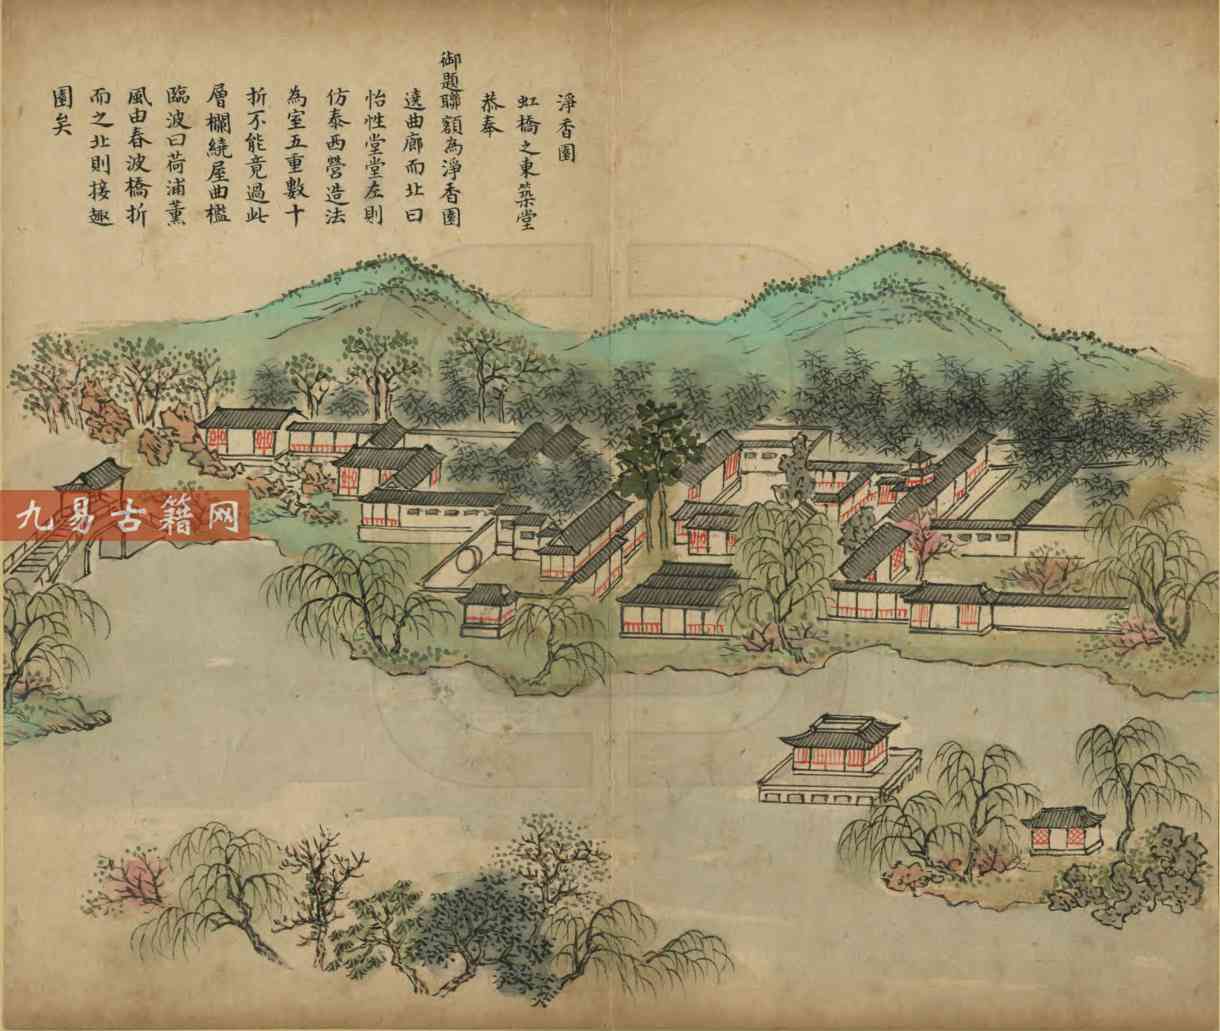 淨香園
虹橋之東築堂
恭奉
御題聯額為淨香園
遶曲廊而北曰
怡性堂堂左則
仿泰西營造法
為室五重數十
折不能竟過此
層欄繞屋曲檻
臨波曰荷浦薰
風由春波橋折
而之北則接趣
園矣
九易古籍网